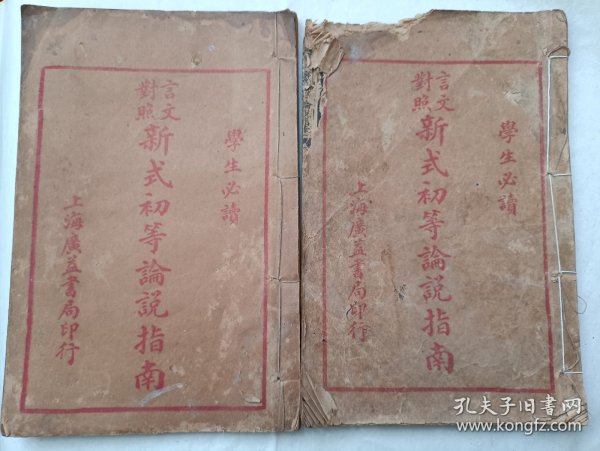 學生必讀
言文對照
新式初等論説指南
上海廣益書局印行
學生必讀
言文對照
新式初等論説指南
上海廣益書局印行
孔夫子旧書网
www.kongfz.com